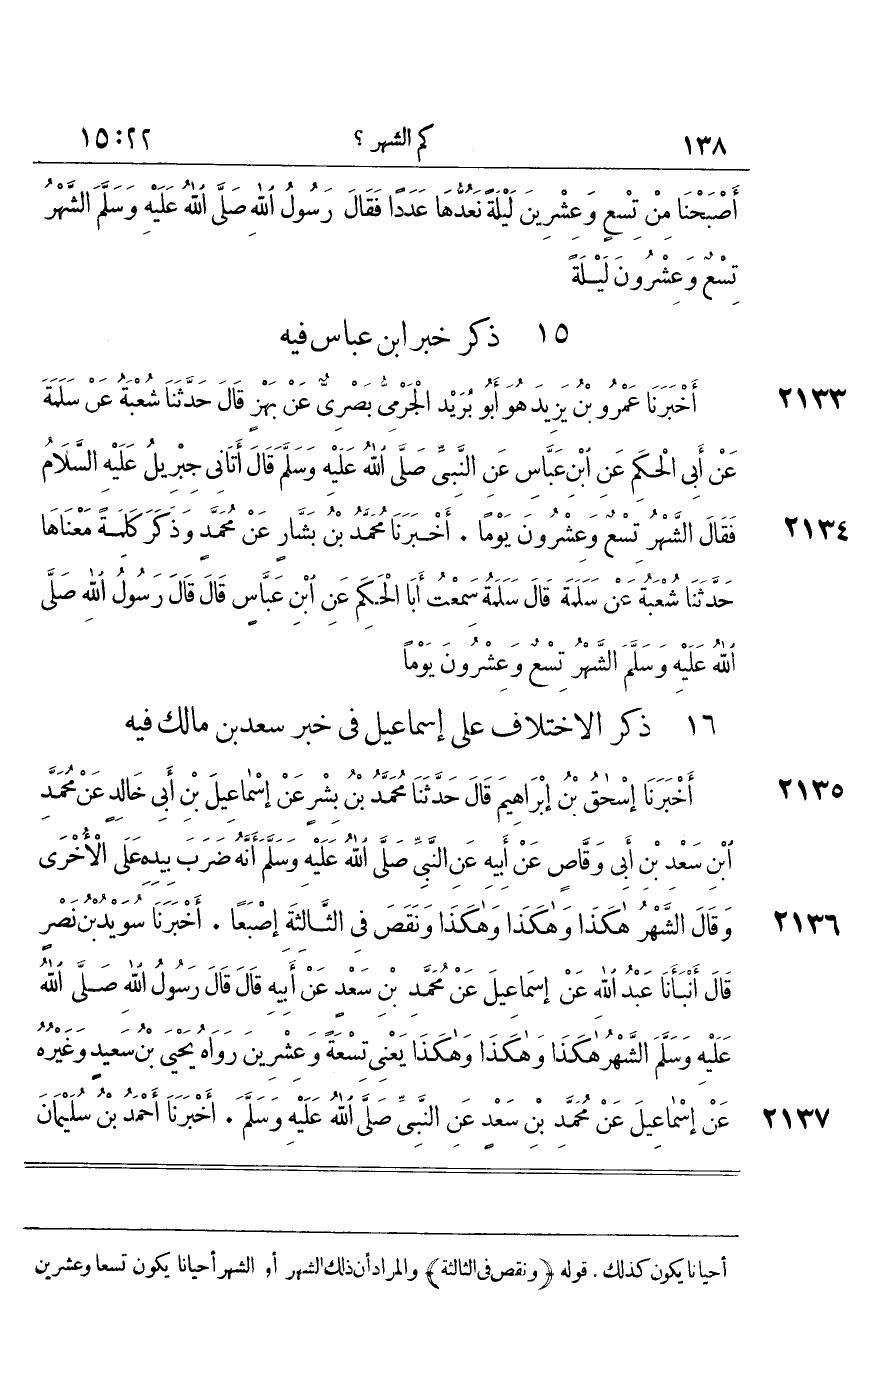 ١٣٨ كم الشهر ؟ ١٥:٢٢
أَصْبَحْنَا مِنْ تِسْعٍ وَعِشْرِينَ لَيْلَةً نَعُدُّهَا عَدَدًا فَقَالَ رَسُولُ اللهِ صَلَّى اللهُ عَلَيْهِ وَسَلَّمَ الشَّهْرُ
تِسْعٌ وَعِشْرُونَ لَيْلَةً
١٥ ذكر خبر ابن عباس فيه
٢١٣٣ أَخْبَرَنَا عَمْرُو بْنُ يَزِيدَ هُوَ أَبُو بُرَيْدٍ الْجَرْمِيُّ بَصْرِيٌّ عَنْ بَهْزٍ قَالَ حَدَّثَنَا شُعْبَةُ عَنْ سَلَمَةَ
عَنْ أَبِي الْحَكَمِ عَنِ ابْنِ عَبَّاسٍ عَنِ النَّبِيِّ صَلَّى اللهُ عَلَيْهِ وَسَلَّمَ قَالَ أَتَانِي جِبْرِيلُ عَلَيْهِ السَّلَامُ
٢١٣٤ فَقَالَ الشَّهْرُ تِسْعٌ وَعِشْرُونَ يَوْمًا . أَخْبَرَنَا مُحَمَّدُ بْنُ بَشَّارٍ عَنْ مُحَمَّدٍ وَذَكَرَ كَلِمَةً مَعْنَاهَا
حَدَّثَنَا شُعْبَةُ عَنْ سَلَمَةَ قَالَ سَلَمَةُ سَمِعْتُ أَبَا الْحَكَمِ عَنِ ابْنِ عَبَّاسٍ قَالَ قَالَ رَسُولُ اللهِ صَلَّى
اللهُ عَلَيْهِ وَسَلَّمَ الشَّهْرُ تِسْعٌ وَعِشْرُونَ يَوْمًا
١٦ ذكر الاختلاف على إسماعيل فى خبر سعد بن مالك فيه
٢١٣٥ أَخْبَرَنَا إِسْحٰقُ بْنُ إِبْرَاهِيمَ قَالَ حَدَّثَنَا مُحَمَّدُ بْنُ بِشْرٍ عَنْ إِسْمٰاعِيلَ بْنِ أَبِي خَالِدٍ عَنْ مُحَمَّدِ
ابْنِ سَعْدِ بْنِ أَبِي وَقَّاصٍ عَنْ أَبِيهِ عَنِ النَّبِيِّ صَلَّى اللهُ عَلَيْهِ وَسَلَّمَ أَنَّهُ ضَرَبَ بِيَدِهِ عَلَى الْأُخْرَى
٢١٣٦ وَقَالَ الشَّهْرُ هٰكَذَا وَهٰكَذَا وَهٰكَذَا وَنَقَصَ فِي الثَّالِثَةِ إِصْبَعًا . أَخْبَرَنَا سُوَيْدُ بْنُ نَصْرٍ
قَالَ أَنْبَأَنَا عَبْدُ اللهِ عَنْ إِسْمَاعِيلَ عَنْ مُحَمَّدِ بْنِ سَعْدٍ عَنْ أَبِيهِ قَالَ قَالَ رَسُولُ اللهِ صَلَّى اللهُ
عَلَيْهِ وَسَلَّمَ الشَّهْرُ هٰكَذَا وَهٰكَذَا وَهٰكَذَا يَعْنِي تِسْعَةً وَعِشْرِينَ رَوَاهُ يَحْيَى بْنُ سَعِيدٍ وَغَيْرُهُ
٢١٣٧ عَنْ إِسْمٰاعِيلَ عَنْ مُحَمَّدِ بْنِ سَعْدٍ عَنِ النَّبِيِّ صَلَّى اللهُ عَلَيْهِ وَسَلَّمَ . أَخْبَرَنَا أَحْمَدُ بْنُ سُلَيْمَانَ
أحيانا يكون كذلك . قوله ﴿ونقص فى الثالثة﴾ والمراد أن ذلك الشهر أو الشهر أحيانا يكون تسعا وعشرين